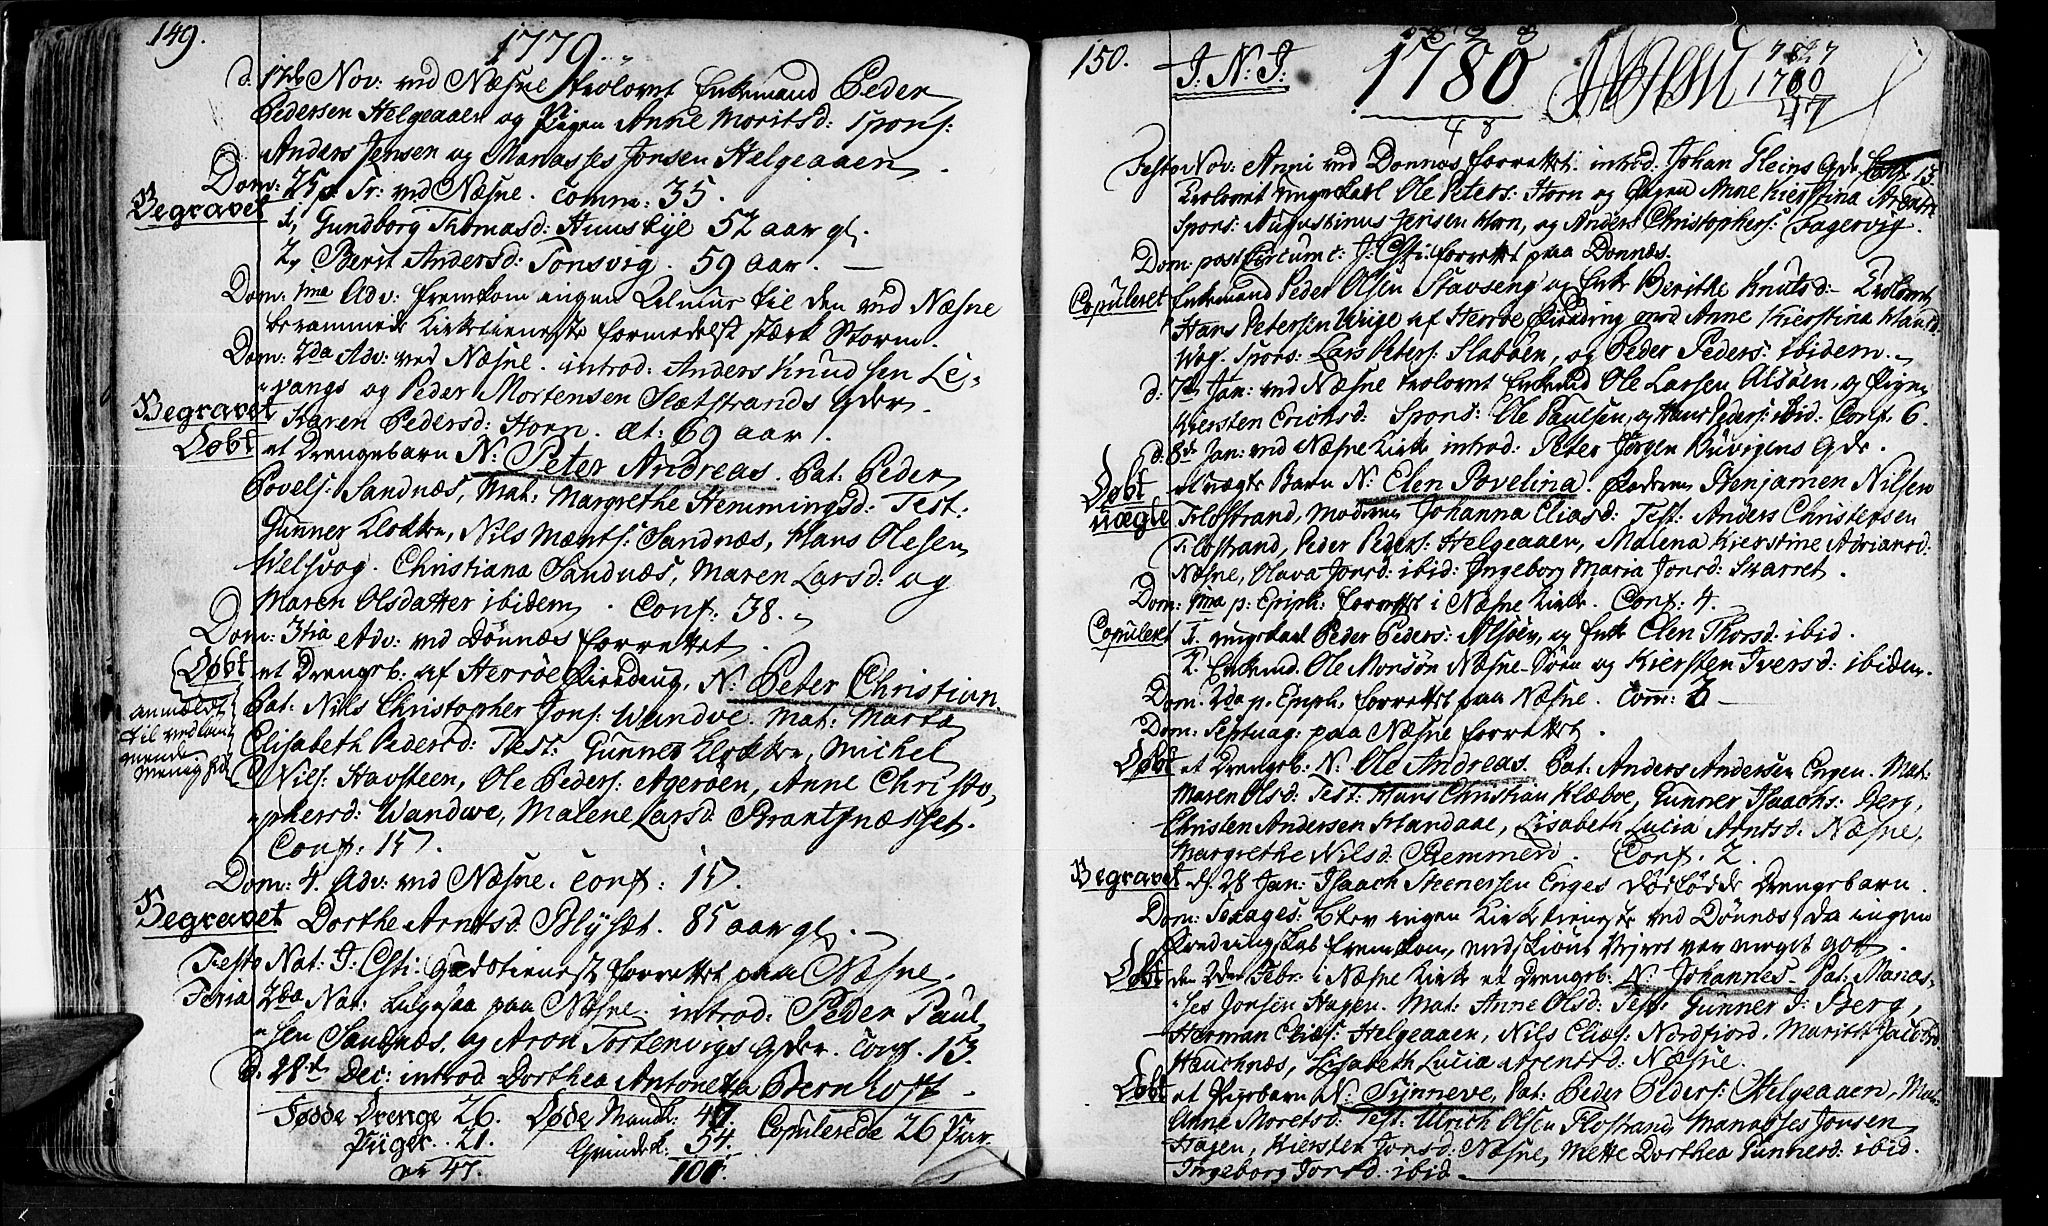 149.
1779.
d. 17de Nov: ved Næsne trolovet Enkemand Peder
Pedersen Helgeaaen og Pigen Anne Moritsd: Spons:
Anders Jensen og Manasses Jonsen Helgeaaen.
Dom: 25 p. Tr: ved Næsne. Comm: 35.
Begravet
1, Gundborg Thomasd: Huusbye 52 aar gl.
2, Berit Andersd: Tonsvig. 59 aar.
Dom: 1ma Adv: fremkom ingen Almue til den ved Næsne
berammede Kirketieneste formedelst stærk Storm.
Dom: 2da Adv: ved Næsne. introd: Anders Knudsen Le-
pangs og Peder Mortensen Slætstrands qder.
Begravet Karen Pedersd: Horn. æt: 69 aar.
Døbt et Drengebarn N: Peter Andreas. Pat: Peder
Povels: Sandnæs, Mat: Margrethe Hemmingsd: Test:
Gunner Klokker, Nils Mænts: Sandnæs, Hans Olesen
Welsvog. Christiana Sandnæs, Maren Larsd: og
Maren Olsdatter ibidem. Conf: 38.
Dom: 3tia Adv: ved Dønnæs forrettet.
Døbt et Drengeb: af Herrøe Præding, N: Peter Christian
anmældt til vedkommende Menighed
Pat: Nils Christopher Jons: Wandve. Mat: Marta
Elisabeth Pedersd: Test: Gunner Klokker, Michel
Nils: Havsteen, Ole Peders: Agerøen, Anne Christo-
phersd: Wandwe, Malene Larsd: Brantsnæsset.
Conf: 15.
Dom: 4. Adv: ved Næsne. Conf: 15.
Begravet Dorthe Arntsd: Blysæt. 85 aar gl.
Festo Nat: J: Csti: Gudstieneste forrettet paa Næsne.
Feria 2da Nat: ligesaa paa Næsne. introd: Peder Paul-
sen Sandnæs, og Aron Tortenvigs qder. Conf. 13.
d. 28de Dec: introd. Dorthea Antonetta Bernhoft
Fødde Drenge 26. Døde Mandk: 47. Copulerede 26 Par
Piiger 21. Qvindek: 54.
er 47. 101.
150.
J. N. J.
1780
48
1700
47
Festo Nov: Anni ved Dønnæs forrettet. introd: Johan Heins qde. Conf. 13.
trolovet ungekarl Ole Peters: Horn og Pigen Anne Kierstina Arentsd:
Spons: Augustinus Jensen Horn, og Anders Christophers: Fagervig.
Dom: post Circumc: J: Csti: forrettet paa Dønnæs.
Copuleret Enkemand Peder Olsen Stavseng og Enke Berithe Knutsd: Trolovet
Hans Petersen Urige af Herrøe Præding med Anne Kierstina
Wog. Spons: Lars Peters: Slabøen, og Peder Peders: ibidem.
d. 7de Jan: ved Næsne trolovet Enkemd Ole Larsen Alsøen, og Pigen
Kiersten Erichsd: Spons: Ole Paulsen, og Hans Peders: ibid. Conf. 6.
d. 8de Jan: ved Næsne Kirke introd: Peter Jørgen Buvigens qde.
Døbt uægte et uægte Barn N: Elen Povelina. Faderen Benjamen Nilsen
Flostrand, Moderen Johanna Eliasd: Test: Anders Christensen
Flostrand, Peder Peders: Helgeaaen, Malena Kierstine Adriansd:
Næsne, Olava Jonsd: ibid: Ingeborg Maria Jonsd: Skarret.
Dom: 1ma p: Epiph: forrettet i Næsne Kirke. Conf: 4.
Copuleret 1. ungekarl Peder Peders: Alsøen, og Enke Elen Thorsd: ibid.
2. Enkemd. Ole Monsøn Næsne-Søen og Kiersten Iversd: ibidem.
Dom: 2da p. Epiph. forrettet paa Næsne. Com: 3
Dom: Septuag: paa Næsne forrettet.
Døbt et Drengeb: N: Ole Andreas. Pat: Anders Andersen Engen. Mat:
Maren Olsd: Test: Hans Christian Klæboe, Gunner Isaachs: Berg,
Christen Andersen Strandaae, Lisabeth Lucia Arntsd: Næsne,
Margrethe Nilsd: Remmen. Conf: 2.
Begravet d. 28 Jan: Isaach Steenersen Enges dødfødde Drengebarn.
Dom: Sexages: blev ingen Kirketieneste ved Dønnæs, da ingen
Prædningsfolk fremkom, endskiønt Vejret var meget got.
Døbt den 2den Febr: i Næsne Kirke et Drengeb: N: Johannes. Pat: Manas-
ses Jonsen Hagen. Mat: Anne Olsd: Test: Gunner J: Berg,
Herman Elias: Helgeaaen, Nils Elias: Nordfjord, Marith Jacobsd:
Hauchnæs, Lisabeth Lucia Arentsd: Næsne.
Døbt et Pigebarn N: Synneve, Pat: Peder Peders: Helgeaaen, Mat:
Anne Moretsd: Test: Ulrich Olsen Flostrand, Manasses Jonsen
Hagen, Kiersten Jonsd: Næsne, Mette Dorthea Gunnersd: ibid.
Ingeborg Jonsd: ibid.